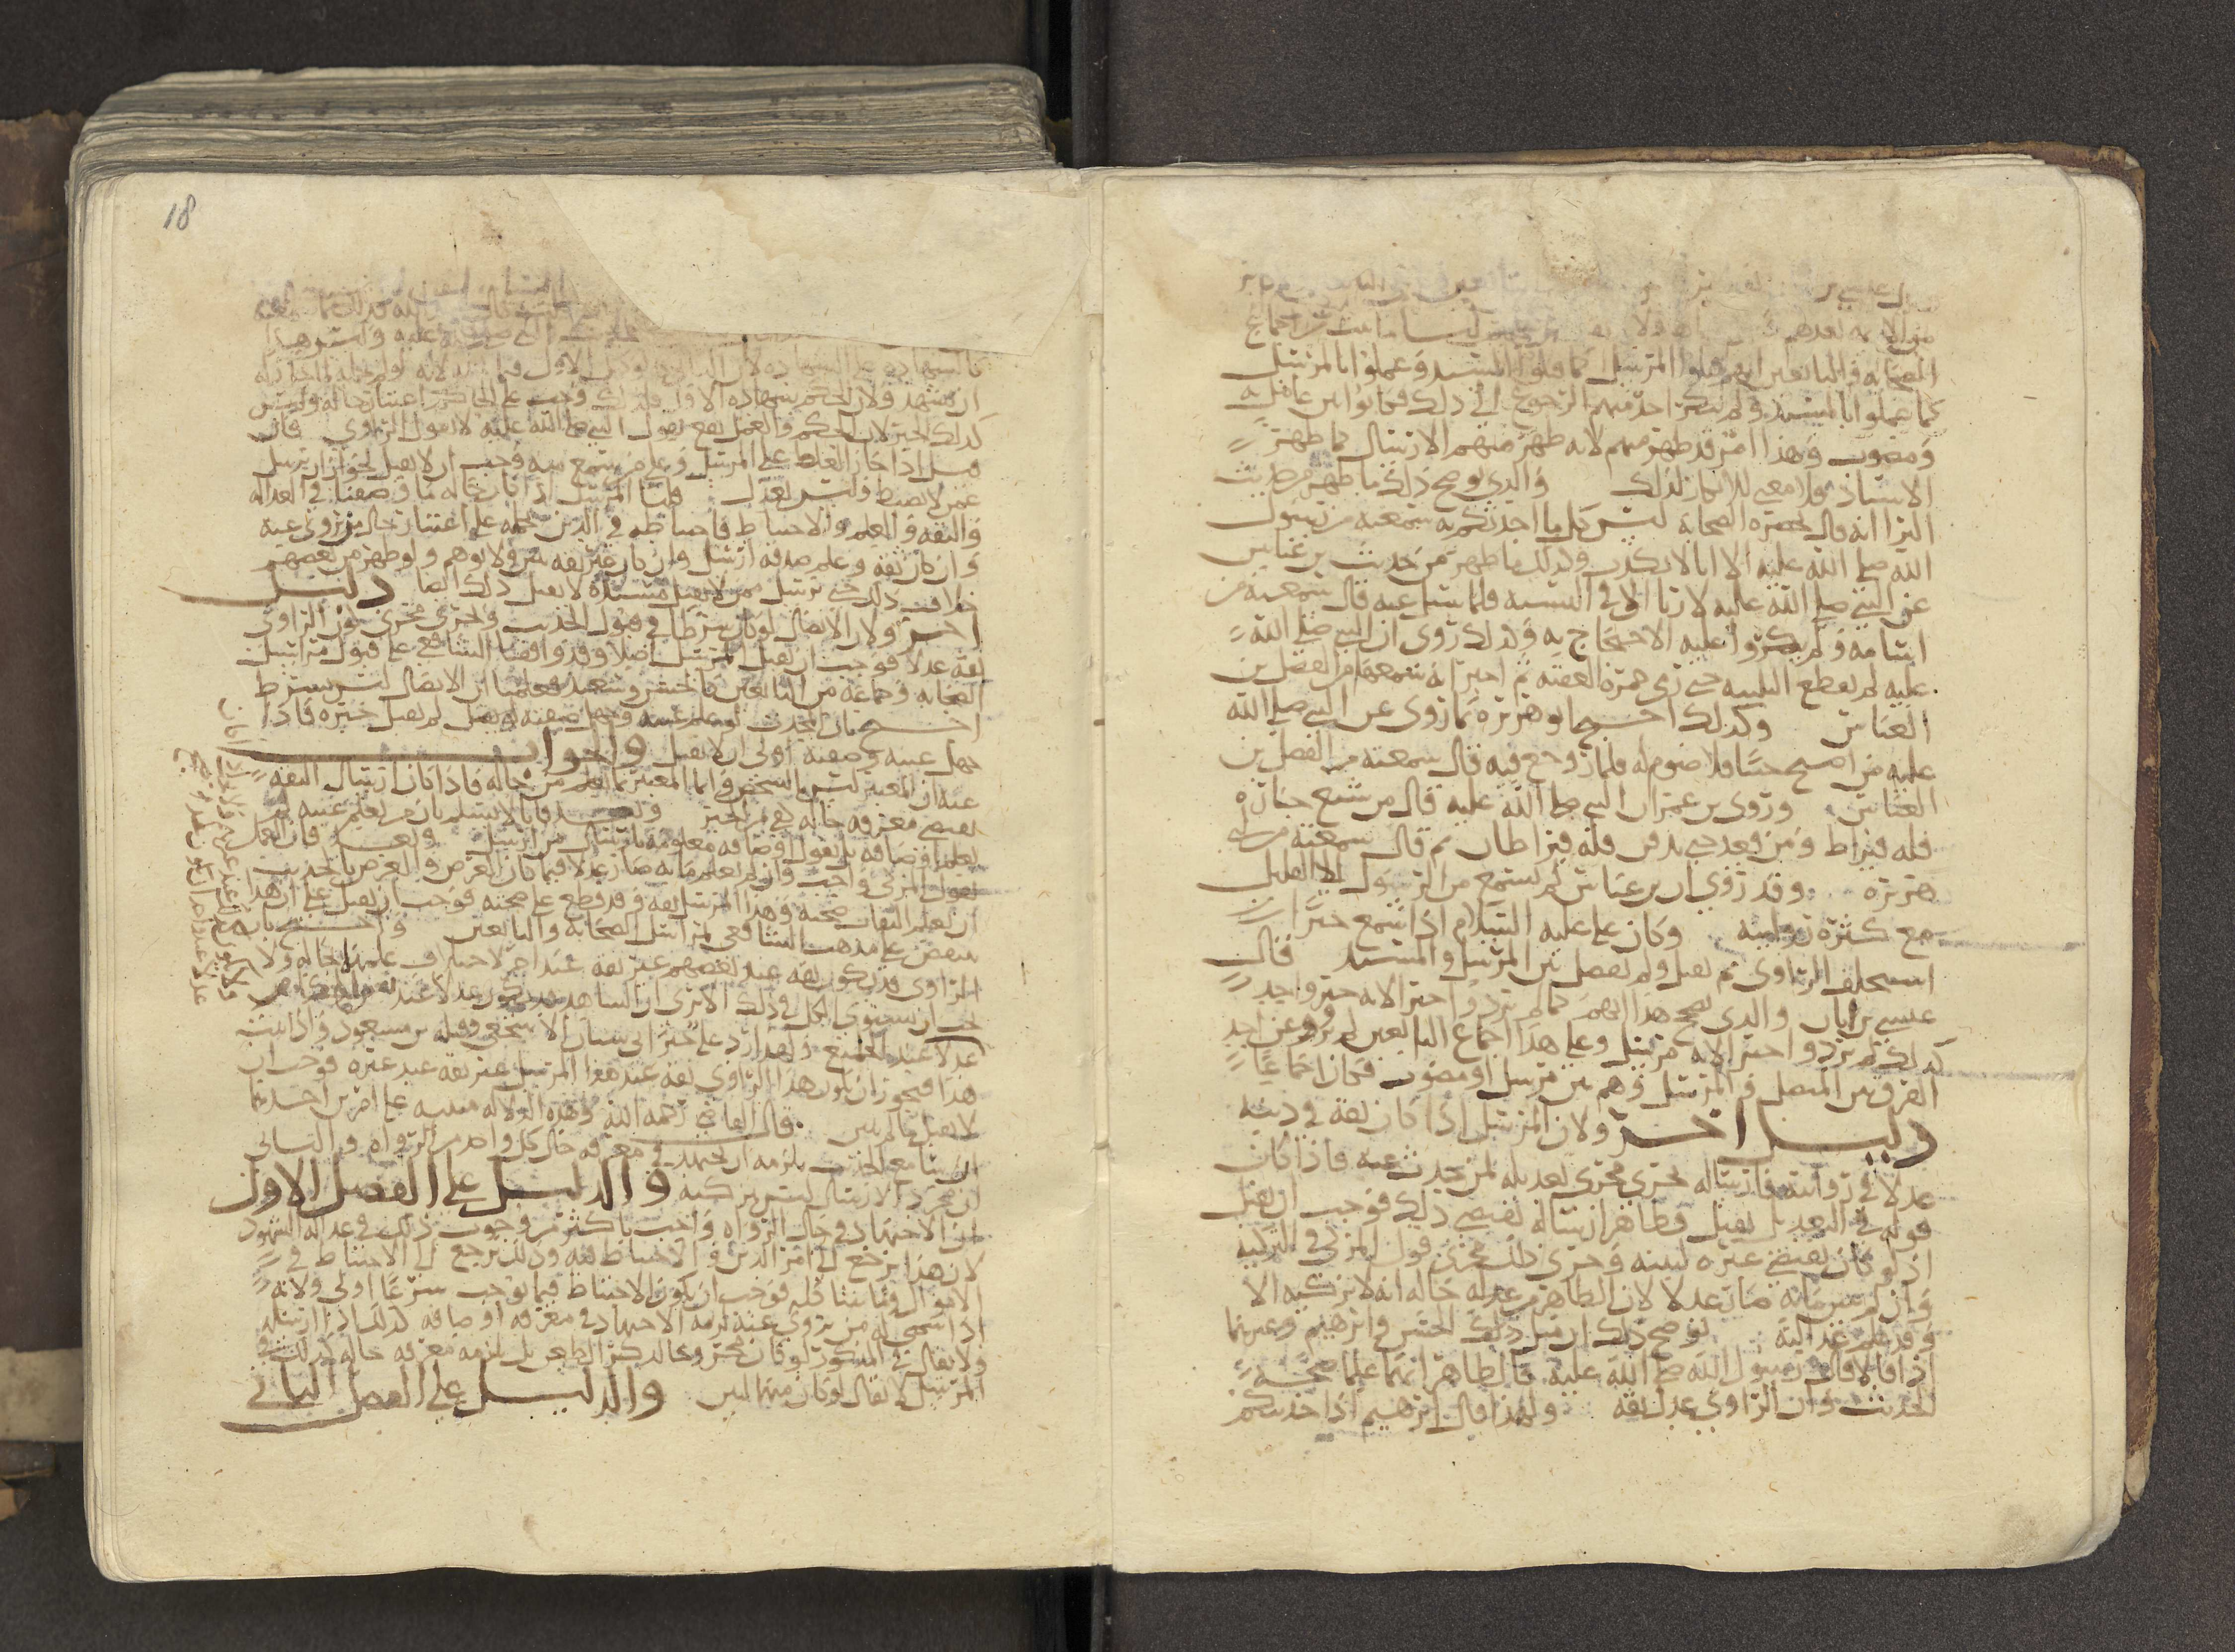 الصحابة والتابعين انهم قبلوا المرسل كما قبلوا المسند وعملوا بالمرسل
كما عملوا بالمسند ولم ينكر احد منهم الرجوع الى ذلك فكانوا بين عامل به
ومصوب وهذا امر قد ظهر منهم لانه ظهر منهم الارسال كما ظهر
الاسناد فلا معنى للانكار لذلك والذي يوضح ذلك ما ظهر من حديث
البرا انه قال بحضرة الصحابة ليس كل ما احدثكم به سمعته من رسول
الله صلى الله عليه الا انا لا نكذب وكذلك ما ظهر من حديث بن عباس
عن النبي صلى الله عليه لا ربا الا في النسية فلما سئل عنه قال سمعته من
اسامة ولم ينكروا عليه الاحتجاج به وكذلك روى ان النبي صلى الله
عليه لم يقطع التلبية حتى رمى جمرة العقبة ثم اخبر انه سمعه من الفضل بن
العباس وكذلك احتج ابو هريرة بما روى عن النبي صلى الله
عليه من اصبح جنبا فلا صوم له فلما روجع فيه قال سمعته من الفضل بن
العباس وروى بن عمر ان النبي صلى الله عليه قال من شيع جنازة
فله قيراط ومن قعد حتى تدفن فله قيراطان ثم قال سمعته من ابي
هريرة وقد روي ان بن عباس لم يستمع من الرسول الا القليل
مع كثرة روايته وكان علي عليه السلام اذا سمع خبرا
استحلف الراوي ثم يقبل ولم يفصل بين المرسل والمسند قال
عيسى بن ابان والذي يصحح هذا انهم كما لم يردوا خبرا لانه خبر واحد
كذلك لم يردوا خبرا لانه مرسل وعلى هذا اجماع التابعين لم يرو عن احد
الفرق بين المتصل والمرسل وهم بين مرسل او مصوب فكان اجماعا
دليل اخر ولان المرسل اذا كان ثقة في دينه
عدلا في روايته فارساله يجري مجرى تعديله لمن يحدث عنه فاذا كان
قوله في التعديل يقبل فظاهر ارساله يقتضي ذلك فوجب ان يقبل
اذ لو كان يقتضي غيره لبينه وجرى ذلك مجرى قول المزكي في التزكية
وان لم يبين ما به صار عدلا لان الظاهر من عدله حاله انه لا يزكيه الا
وقد علم عدالته يوضح ذلك ان قبل ذلك الحسن وابرهيم وغيرهما
اذا قالا قال رسول الله صلى الله عليه فالظاهر انهما علما صحة
الحديث وان الراوي عدل ثقة ولهذا قال ابرهيم اذا حدثتكم
18
ان يشهد ولان الحكم بشهادة الاول فلذلك وجب على الحاكم اعتبار حاله وليس
كذلك الخبر لان الحكم والعمل يقع بقول النبي صلى الله عليه لا بقول الراوي فان
قيل اذا جاز الغلط على المرسل وعلى من سمع منه وجب ان لا يقبل لجواز ان يرسل
عمن لا يضبط وليس بعدل قلنا المرسل اذا كان حاله ما وصفنا في العدالة
والثقة والعلم والاحتياط فاحتياطه في الدين يحمله على اعتبار حال من يروي عنه
وان كان ثقة وعلم صدقه ارسل وان كان غير ثقة بين ولا يوهم ولو ظهر من بعضهم
خلاف ذلك حتى يرسل ممن لا يقبل مسنده لا يقبل ذلك ايضا دليل
اخر ولان الاتصال لو كان شرطا في قبول الحديث وجرى مجرى كون الراوي
ثقة عدلا فوجب ان يقبل المرسل اصلا وقد وافقنا الشافعي على قبول مراسيل
الصحابة وجماعة من التابعين كالحسن وسعيد فعلمنا ان الاتصال ليس بشرط
احتج بان المحدث لو علم عينه وجهل صفته لم يقبل خبره فاذا
جهل عينه وصفته اولى ان لا يقبل والجواب
عنه ان المعتبر ليس بالشخص وانما المعتبر بما يعلم من حاله فاذا كان ارسال الثقة
يقتضي معرفة حاله صح الخبر فانا لا نسلم بان من لم يعلم عينه لم
يعلم اوصافه بل نقول اوصافه معلومة بارسال من ارسل فان العمل
بقول المزكي واجب وان لم يعلم ما به صار عدلا فيما كان الغرض والغرض بالحديث
ان يعلم الثقات صحته وهذا المرسل ثقة وقد قطع على صحته فوجب ان يقبل على ان هذا
ينقض على مذهب الشافعي بمراسيل الصحابة والتابعين واحتج بان
الراوي قد يكون ثقة عند بعضهم غير ثقة عند اخر لاختلاف علمهما بحاله ولا
يجب ان يستوي الكل في ذلك الا ترى ان الشاهد قد يكون عدلا عند
عدلا عند الجميع ولهذا رد علي خبر ابي سنان الاشجعي وقبله بن مسعود واذا ثبت
هذا فيجوز ان يكون هذا الراوي ثقة عند هذا المرسل غير ثقة عند غيره فوجب ان
لا يقبل ما لم يبين قال القاضي رحمه الله وهذه الدلالة مبنية على امرين احدهما
ان سامع الحديث يلزمه ان يجتهد في معرفة حال كل واحد من الرواة والثاني
ان مجرد الارسال ليس بتزكية والدليل على الفصل الاول
ان الاجتهاد في حال الرواة واجب باكثر من وجوب ذلك في عدالة الشهود
لان هذا يرجع الى امر الدين والاحتياط فيه وذلك يرجع الى الاحتياط في
الاموال وما شاكله فوجب ان يكون الاحتياط فيما يوجب شرعا اولى ولانه
اذا سمى له من يروي عنه لزمه الاجتهاد في معرفة اوصافه كذلك اذا ارسله
ولا يقال في المذكور لو كان مجروحا لذكر الطعن بل يلزمه معرفة حاله كذلك في
المرسل لا يقال لو كان متهما لبين والدليل على الفصل الثاني